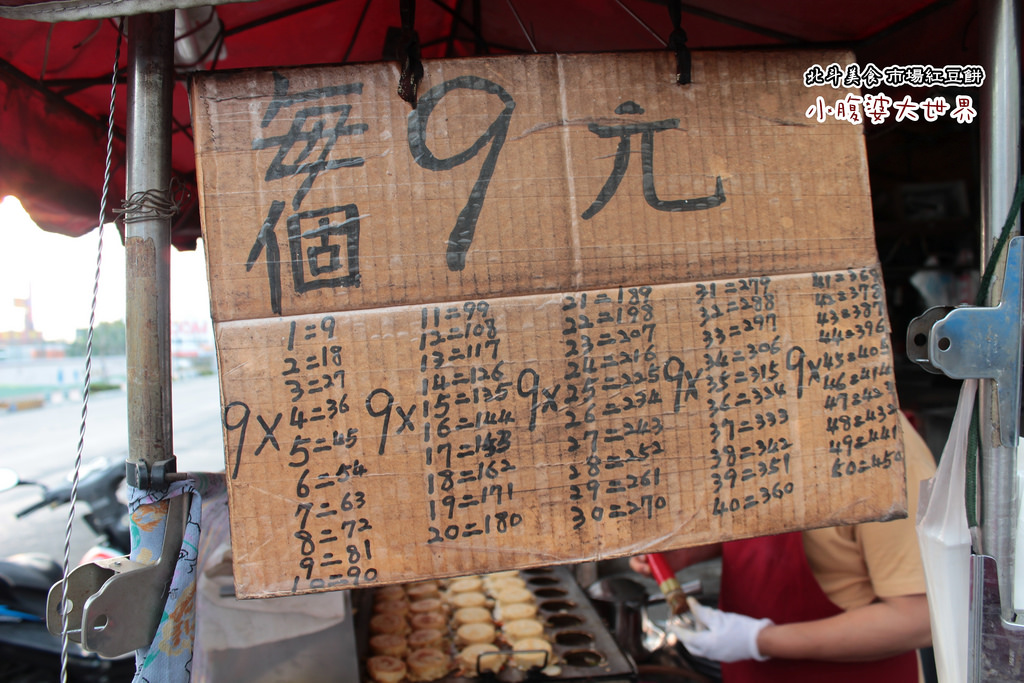 北斗美食 市場紅豆餅
小腹婆大世界
每個 9 元
9×
1=9
2=18
3=27
4=36
5=45
6=54
7=63
8=72
9=81
10=90
9×
11=99
12=108
13=117
14=126
15=135
16=144
17=153
18=162
19=171
20=180
9×
21=189
22=198
23=207
24=216
25=225
26=234
27=243
28=252
29=261
30=270
9×
31=279
32=288
33=297
34=306
35=315
36=324
37=333
38=342
39=351
40=360
9×
41=369
42=378
43=387
44=396
45=40
46=414
47=42
48=432
49=441
50=450